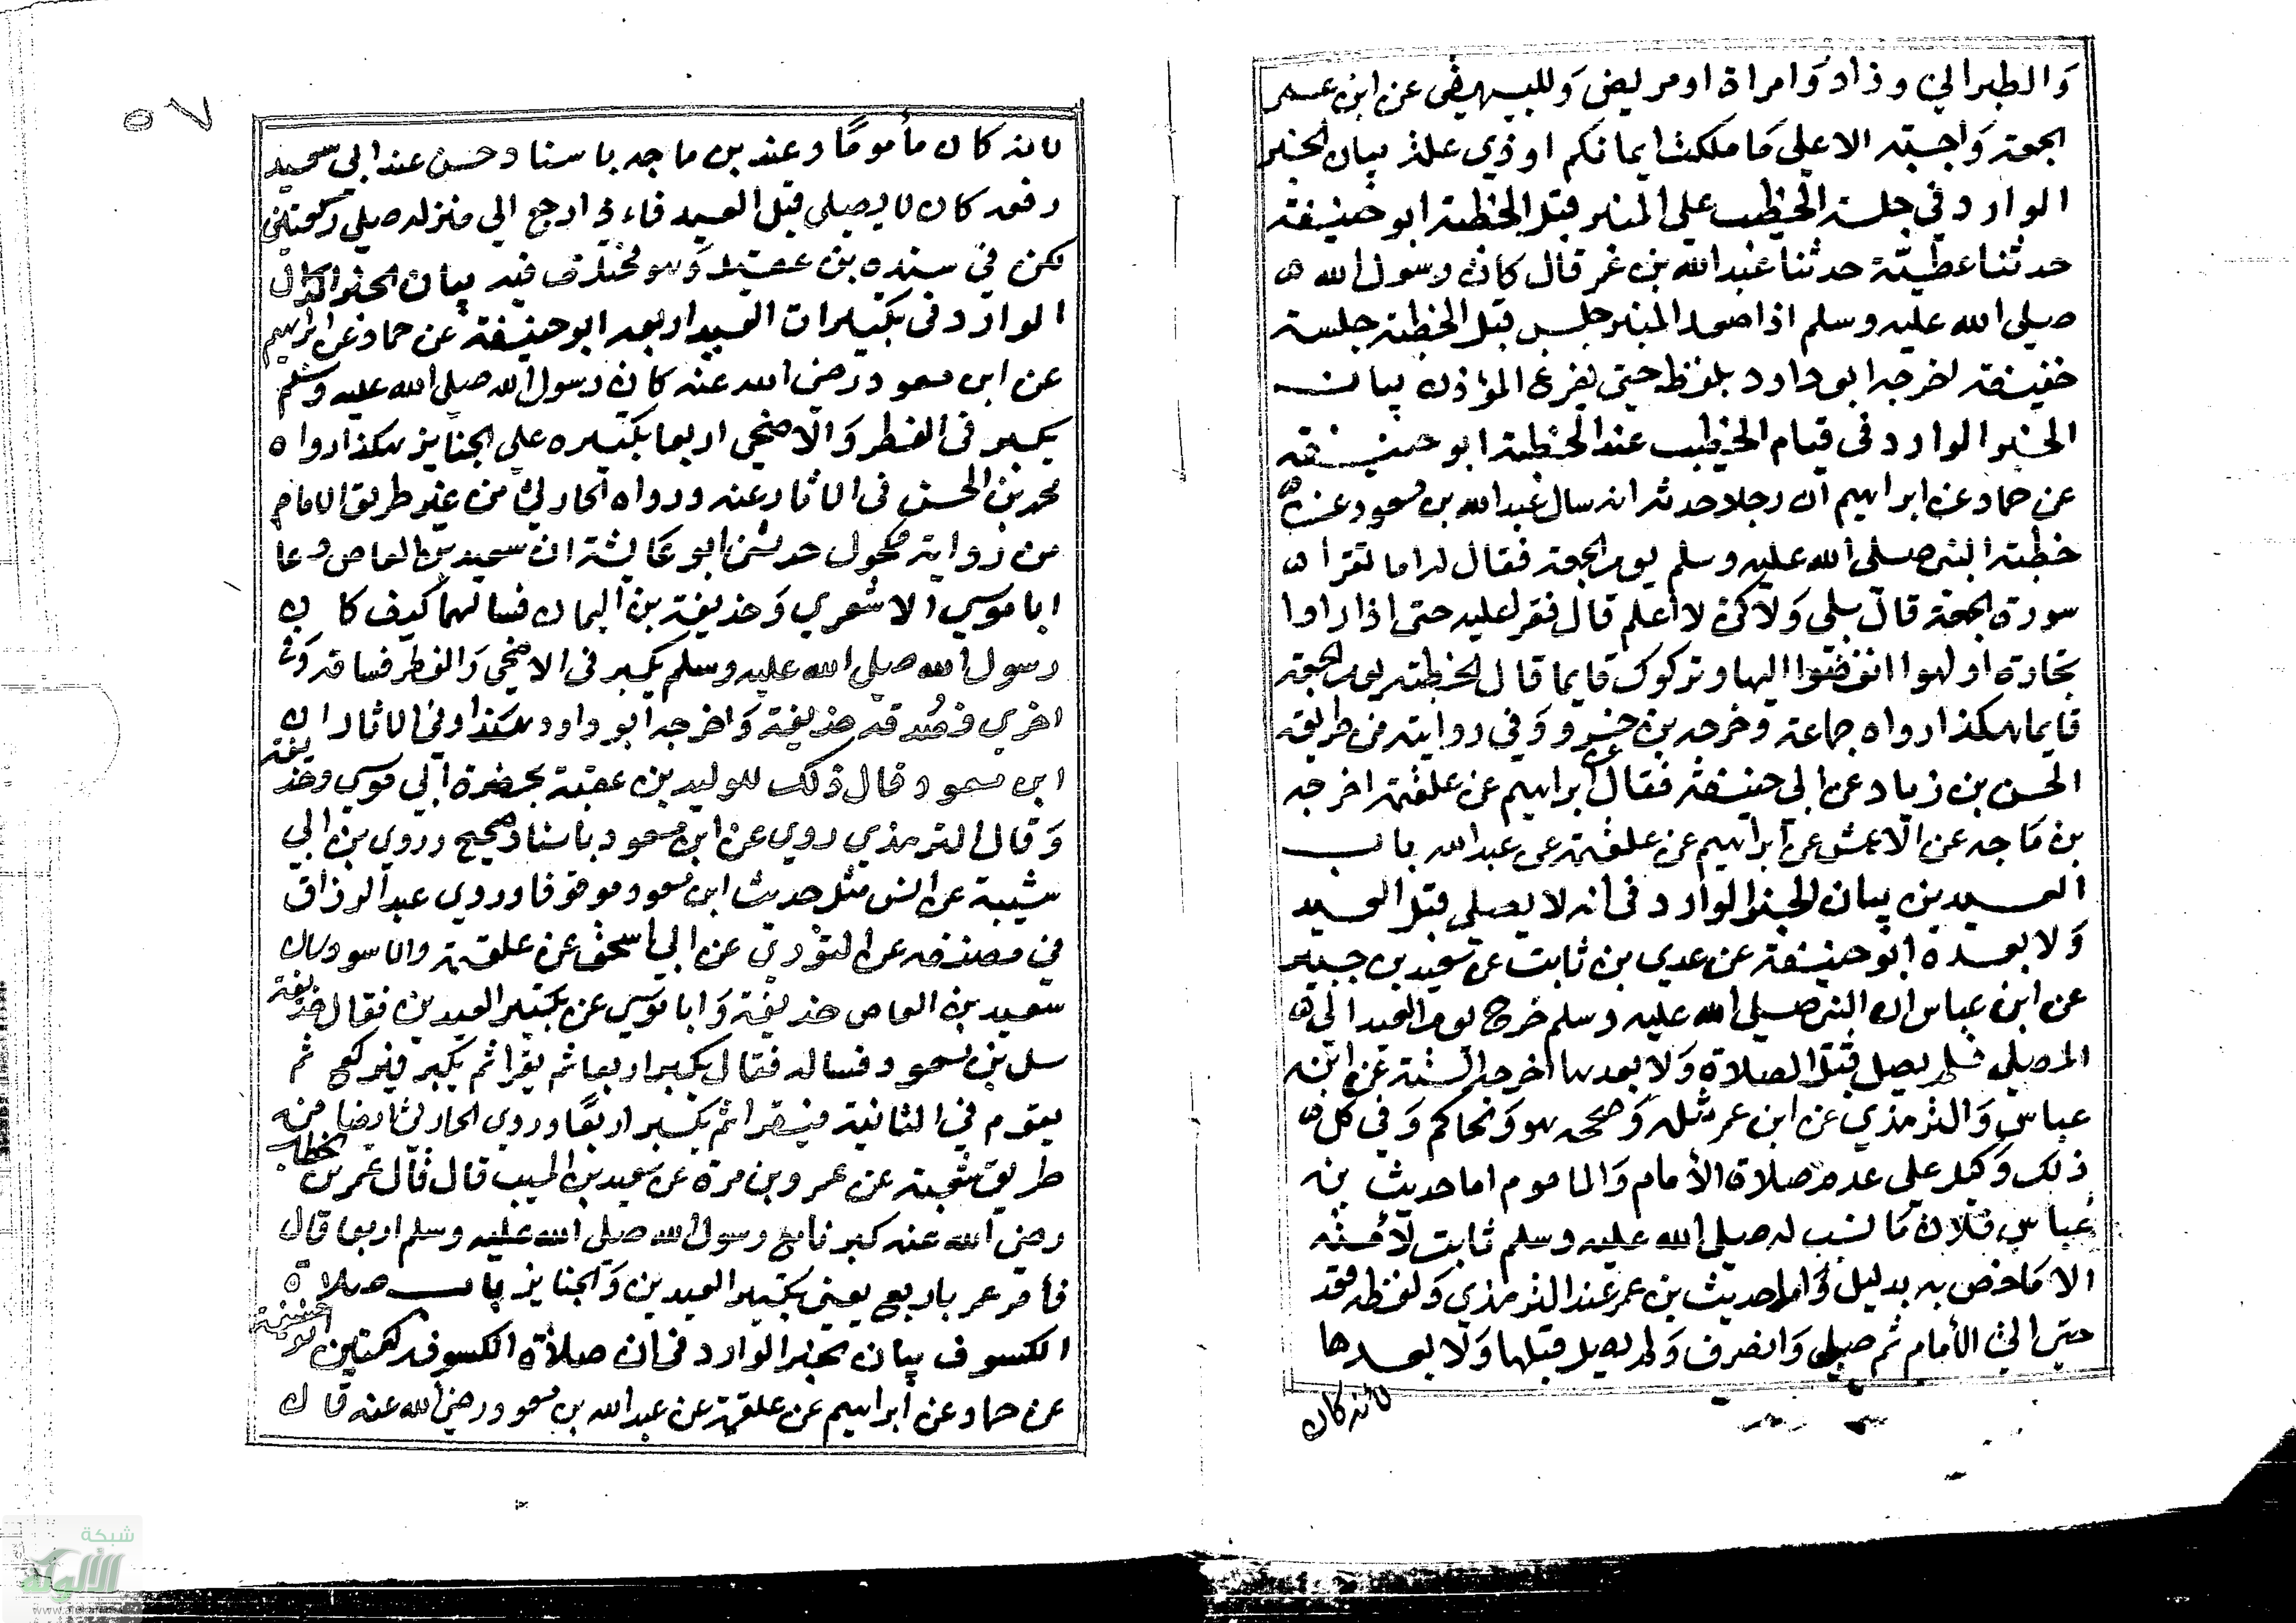 والطبراني وزاد وامراة او مريض وللبيهقي عن ابن عمر
الجمعة واجبة الا على ما ملكت ايمانكم او ذي علة بيان الخبر
الوارد في جلسة الخطيب على المنبر قبل الخطبة ابو حنيفة
حدثنا عطية حدثنا عبد الله بن عمر قال كان رسول الله
صلى الله عليه وسلم اذا صعد المنبر جلس قبل الخطبة جلسة
خفيفة اخرجه ابو داود بلفظ حتى يفرغ المؤذن بيان
الخبر الوارد في قيام الخطيب عند الخطبة ابو حنيفة
عن حماد عن ابراهيم ان رجلا حدثه انه سال عبد الله بن مسعود عن
خطبة النبي صلى الله عليه وسلم يوم الجمعة فقال له اما تقرا
سورة الجمعة قال بلى ولاكن لا أعلم قال فقرا عليه حتى اذا راوا
تجارة او لهوا انفضوا اليها وتركوك قايما قال الخطبة يوم الجمعة
قايما هكذا رواه جماعة وخرجه بن خسرو وفي رواية من طريق
الحسن بن زياد عن ابي حنيفة فقال عن ابراهيم عن علقمة اخرجه
بن ماجه عن الاعمش عن ابراهيم عن علقمة عن عبد الله باب
العيدين بيان الخبر الوارد في انه لا يصلي قبل العيد
ولا بعده ابو حنيفة عن عدي بن ثابت عن سعيد بن جبير
عن ابن عباس ان النبي صلى الله عليه وسلم خرج يوم العيد الى
المصلى فلم يصل قبل الصلاة ولا بعدها اخرجه الستة عن ابن
عباس والترمذي عن ابن عمر مثله وصححه هو والحاكم وفي كل
ذلك دليل على عدم صلاة الأمام والماموم اما حديث بن
عباس فلان ما نسب له صلى الله عليه وسلم ثابت لأمته
الا ما خص به بدليل وأما حديث بن عمر عند الترمذي ولفظه فقد
حتى اتى الأمام ثم صلى وانصرف ولم يصل قبلها ولا بعدها
لانه كان
٥٧
لانه كان مأمومًا وعند بن ماجه باسناد حسن عند ابي سعيد
رفعه كان لا يصلي قبل العيد فاذا رجع الى منزله صلى ركعتين
لكن في سنده بن عقيل وهو مختلف فيه بيان الخبر الدال
الوارد في تكبيرات العيد اربعه ابو حنيفة عن حماد عن ابراهيم
عن ابن مسعود رضي الله عنه كان رسول الله صلى الله عليه وسلم
يكبر في الفطر والاضحى اربعا تكبيره على الجنايز هكذا رواه
محمد بن الحسن في الاثار عنه ورواه الحارثي من غير طريق الامام
من رواية مكحول حدثني ابو عايشة ان سعيد بن العاص دعا
ابا موسى الاشعري وحذيفة بن اليمان فسالهما كيف كان
رسول الله صلى الله عليه وسلم يكبر في الاضحى والفطر فساقه
اخرى فصدقه حذيفة واخرجه ابو داود هكذا وفي الاثار ان
ابن مسعود قال ذلك للوليد بن عقبة بحضرة أبي موسى وحذيفة
وقال الترمذي روي عن ابن مسعود باسناد صحيح وروى بن ابي
شيبة عن انس مثل حديث ابن مسعود موقوفا وروى عبد الرزاق
في مصنفه عن الثوري عن ابي اسحق عن علقمة والاسود سال
سعيد بن العاص حذيفة وابا موسى عن تكبير العيدين فقال حذيفة
سل بن مسعود فساله فقال يكبر اربعا ثم يقرا ثم يكبر فيركع ثم
يقوم في الثانية فيقرا ثم يكبر اربعًا وروى الحارثي ايضا من
طريق شعبة عن عمرو بن مرة عن سعيد بن المسيب قال قال عمر بن الخطاب
رضي الله عنه كبر نامع رسول الله صلى الله عليه وسلم اربعا قال
فأمر عمر باربع يعني تكبير العيدين والجنايز باب صلاة
الكسوف بيان الخبر الوارد في ان صلاة الكسوف ركعتين ابو حنيفة
عن حماد عن ابراهيم عن علقمة عن عبد الله بن مسعود رضي الله عنه قال
شبكة
الألوكة